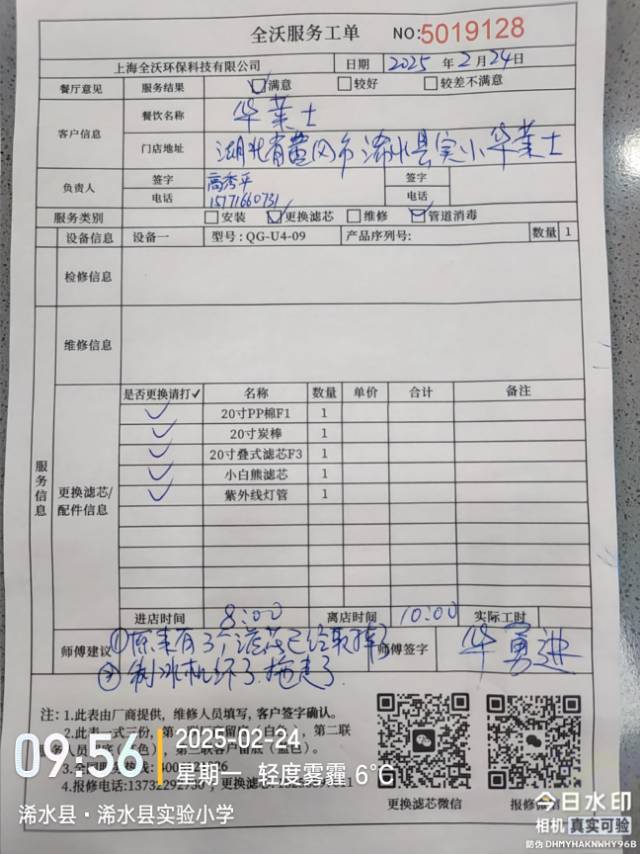 全沃服务工单 NO:5019128
上海全沃环保科技有限公司 日期 2025 年 2 月 24 日
餐厅意见 服务结果 ☑满意 □较好 □较差不满意
客户信息 餐饮名称 华莱士
门店地址 湖北省黄冈市浠水县实小华莱士
负责人 签字 高秀平 签字
电话 15171660731 电话
服务类别 □安装 ☑更换滤芯 □维修 ☑管道消毒
设备信息 设备一 型号:QG-U4-09 产品序列号: 数量 1
检修信息
维修信息
服务信息
更换滤芯/配件信息
是否更换请打✓ 名称 数量 单价 合计 备注
✓ 20寸PP棉F1 1
✓ 20寸炭棒 1
✓ 20寸叠式滤芯F3 1
✓ 小白熊滤芯 1
✓ 紫外线灯管 1
进店时间 8:00 离店时间 10:00 实际工时
师傅建议 ①原来有3个滤芯已经取掉了 师傅签字 华勇进
②制冰机坏了拖走了
注:1.此表由厂商提供，维修人员填写，客户签字确认。
2.此表一式三份，第一联
第二联
4.报修电话:13732292730
更换滤芯微信 报修微信
09:56 2025-02-24
星期一 轻度雾霾 6℃
浠水县·浠水县实验小学
今日水印
相机 真实可验
防伪 DHMYHAKNWHY96B